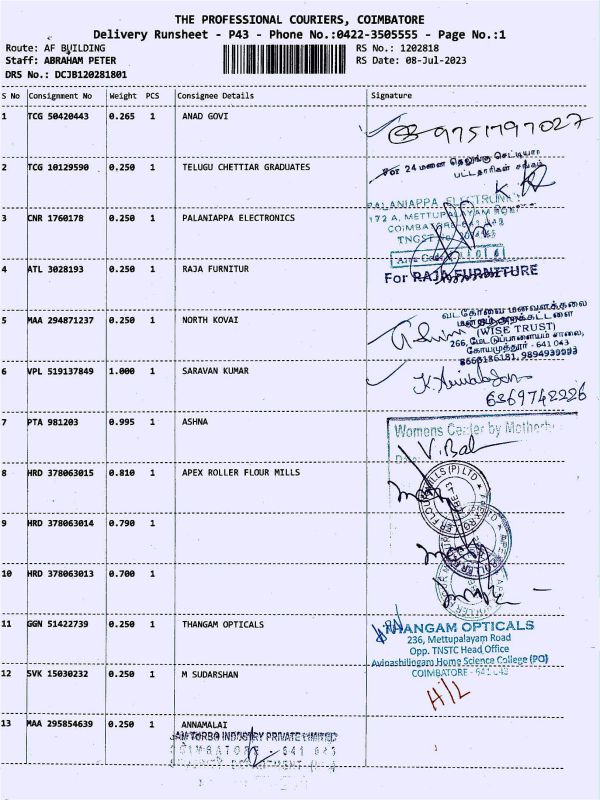 THE PROFESSIONAL COURIERS, COIMBATORE
Delivery Runsheet - P43 - Phone No.:0422-3505555 - Page No.:1
Route: AF BUILDING RS No.: 1202818
Staff: ABRAHAM PETER RS Date: 08-Jul-2023
DRS No.: DCJB120281801
S No Consignment No Weight PCS Consignee Details Signature
1 TCG 50420443 0.265 1 ANAD GOVI
9751797027
2 TCG 10129590 0.250 1 TELUGU CHETTIAR GRADUATES
For 24 மனை தெலுங்கு செட்டியார்
பட்டதாரிகள் சங்கம்
3 CNR 1760178 0.250 1 PALANIAPPA ELECTRONICS
PALANIAPPA ELECTRONIC
172 A, METTUPALAYAM ROAD
COIMBATORE-641 043
TNGST
4 ATL 3028193 0.250 1 RAJA FURNITUR
For RAJA FURNITURE
5 MAA 294871237 0.250 1 NORTH KOVAI
வடகோவை மனவளக்கலை
மன்றம் அறக்கட்டளை
(WISE TRUST)
266, மேட்டுப்பாளையம் சாலை,
கோயமுத்தூர் - 641 043
9894939993
6 VPL 519137849 1.000 1 SARAVAN KUMAR
6369742226
7 PTA 981203 0.995 1 ASHNA
Womens Center by Motherh
V. Bal
8 HRD 378063015 0.810 1 APEX ROLLER FLOUR MILLS
9 HRD 378063014 0.790 1
10 HRD 378063013 0.700 1
11 GGN 51422739 0.250 1 THANGAM OPTICALS
THANGAM OPTICALS
236, Mettupalayam Road
Opp. TNSTC Head Office
Avinashilingam Home Science College (PO)
COIMBATORE - 641 043
12 SVK 15030232 0.250 1 M SUDARSHAN
H/L
13 MAA 295854639 0.250 1 ANNAMALAI
TURBO INDUSTRY PRIVATE LIMITED
COIMBATORE - 641 043